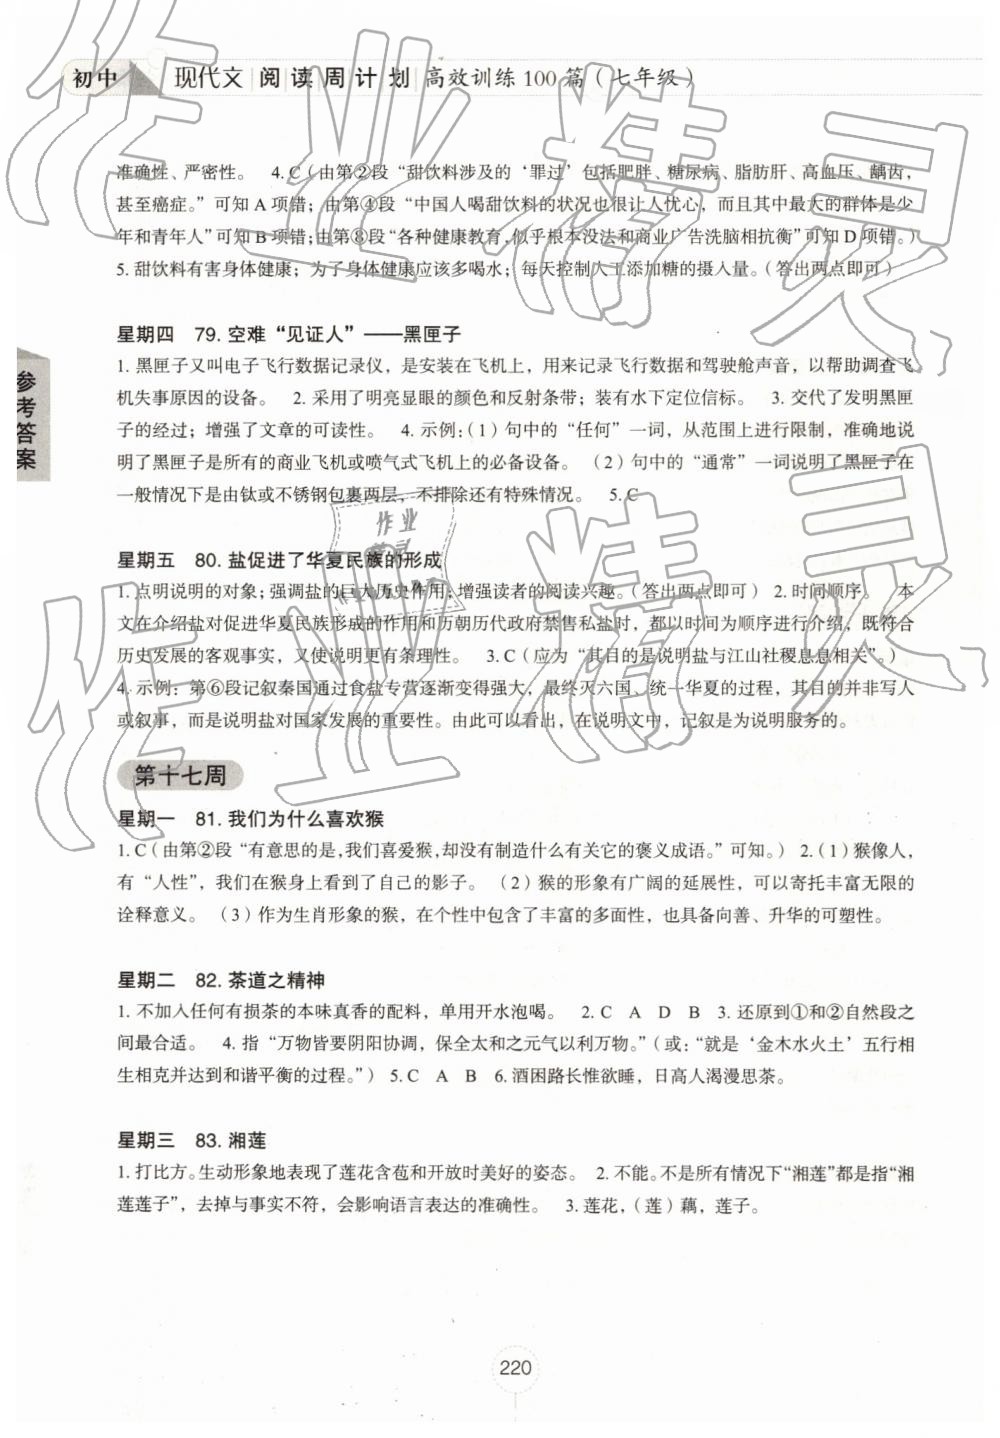 初中 现代文 阅读周计划 高效训练100篇(七年级)
准确性、严密性。 4. C(由第②段“甜饮料涉及的‘罪过’包括肥胖、糖尿病、脂肪肝、高血压、龋齿,
甚至癌症。”可知A项错;由第④段“中国人喝甜饮料的状况也很让人忧心,而且其中最大的群体是少
年和青年人”可知B项错;由第⑧段“各种健康教育,似乎根本没法和商业广告洗脑相抗衡”可知D项错。)
5. 甜饮料有害身体健康;为了身体健康应该多喝水;每天控制人工添加糖的摄入量。(答出两点即可)
星期四 79. 空难“见证人”——黑匣子
1. 黑匣子又叫电子飞行数据记录仪,是安装在飞机上,用来记录飞行数据和驾驶舱声音,以帮助调查飞
机失事原因的设备。 2. 采用了明亮显眼的颜色和反射条带;装有水下定位信标。 3. 交代了发明黑匣
子的经过;增强了文章的可读性。 4. 示例:(1)句中的“任何”一词,从范围上进行限制,准确地说
明了黑匣子是所有的商业飞机或喷气式飞机上的必备设备。 (2)句中的“通常”一词说明了黑匣子在
一般情况下是由钛或不锈钢包裹两层,不排除还有特殊情况。 5. C
参考答案
星期五 80. 盐促进了华夏民族的形成
1. 点明说明的对象;强调盐的巨大历史作用;增强读者的阅读兴趣。(答出两点即可) 2. 时间顺序。 本
文在介绍盐对促进华夏民族形成的作用和历朝历代政府禁售私盐时,都以时间为顺序进行介绍,既符合
历史发展的客观事实,又使说明更有条理性。 3. C(应为“其目的是说明盐与江山社稷息息相关”。)
4. 示例:第⑥段记叙秦国通过食盐专营逐渐变得强大,最终灭六国、统一华夏的过程,其目的并非写人
或叙事,而是说明盐对国家发展的重要性。由此可以看出,在说明文中,记叙是为说明服务的。
第十七周
星期一 81. 我们为什么喜欢猴
1. C(由第②段“有意思的是,我们喜爱猴,却没有制造什么有关它的褒义成语。”可知。) 2.(1)猴像人,
有“人性”,我们在猴身上看到了自己的影子。 (2)猴的形象有广阔的延展性,可以寄托丰富无限的
诠释意义。 (3)作为生肖形象的猴,在个性中包含了丰富的多面性,也具备向善、升华的可塑性。
星期二 82. 茶道之精神
1. 不加入任何有损茶的本味真香的配料,单用开水泡喝。 2. C A D B 3. 还原到①和②自然段之
间最合适。 4. 指“万物皆要阴阳协调,保全太和之元气以利万物。”(或:“就是‘金木水火土’五行相
生相克并达到和谐平衡的过程。”) 5. C A B 6. 酒困路长惟欲睡,日高人渴漫思茶。
星期三 83. 湘莲
1. 打比方。生动形象地表现了莲花含苞和开放时美好的姿态。 2. 不能。不是所有情况下“湘莲”都是指“湘
莲莲子”,去掉与事实不符,会影响语言表达的准确性。 3. 莲花,(莲)藕,莲子。
220
作业精灵
作业精灵